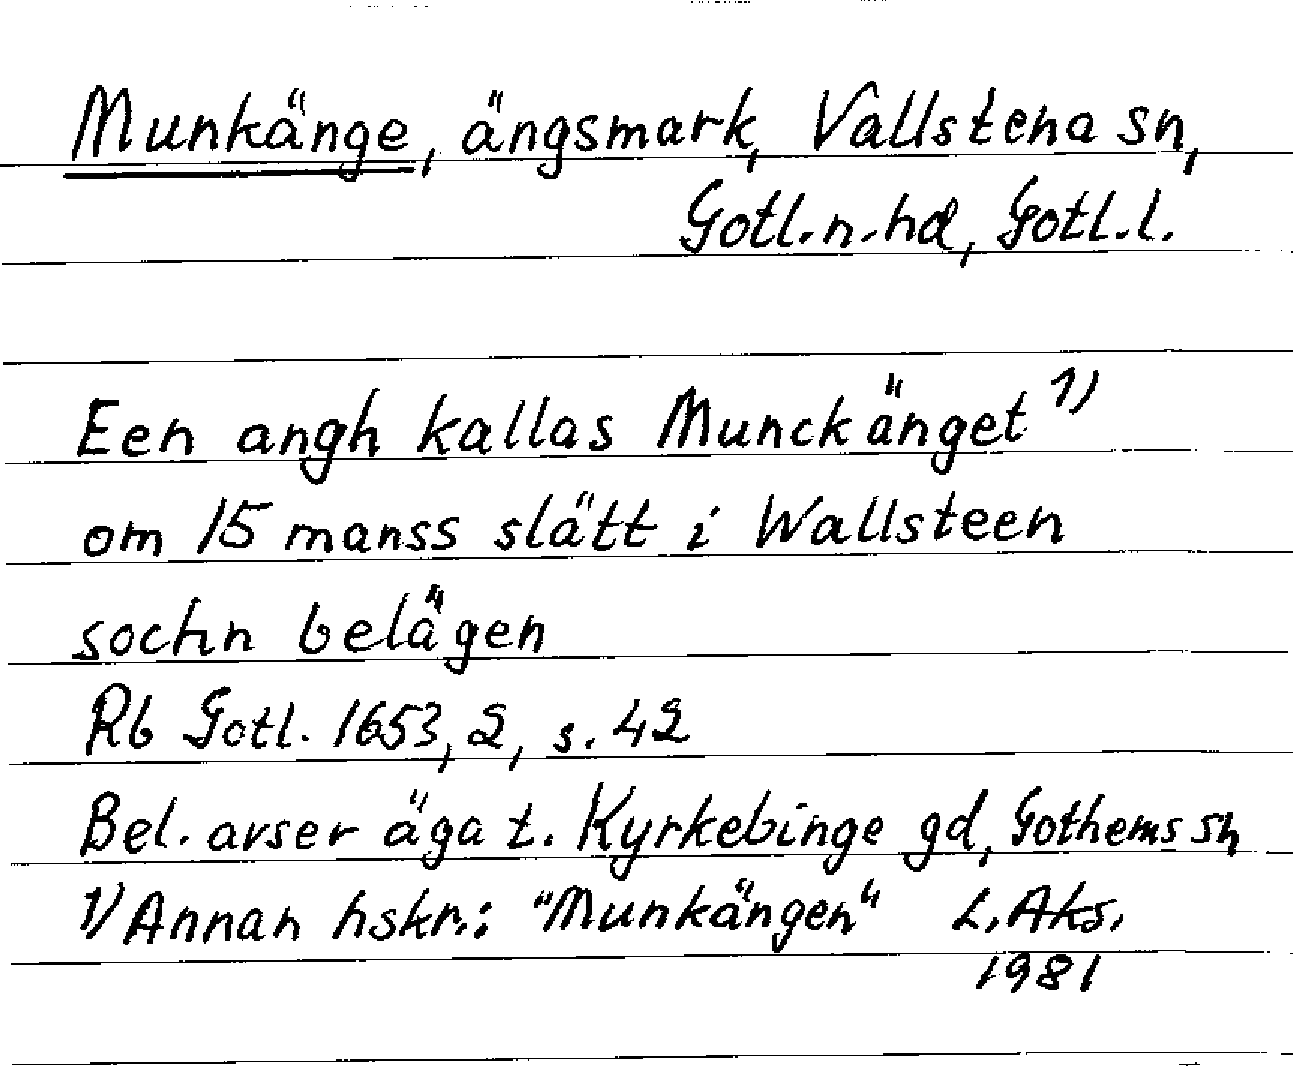 Munkänge, ängsmark, Vallstena sn,
Gotl.n.hd, Gotl.l.
Een angh kallas Munckänget 1)
om 15 manss slätt i Wallsteen
sochn belägen
Rb Gotl. 1653, 2, s. 42
Bel. avser äga t. Kyrkebinge gd, Gothems sn
1) Annan hskr.: "Munkängen" L. Aks.
1981